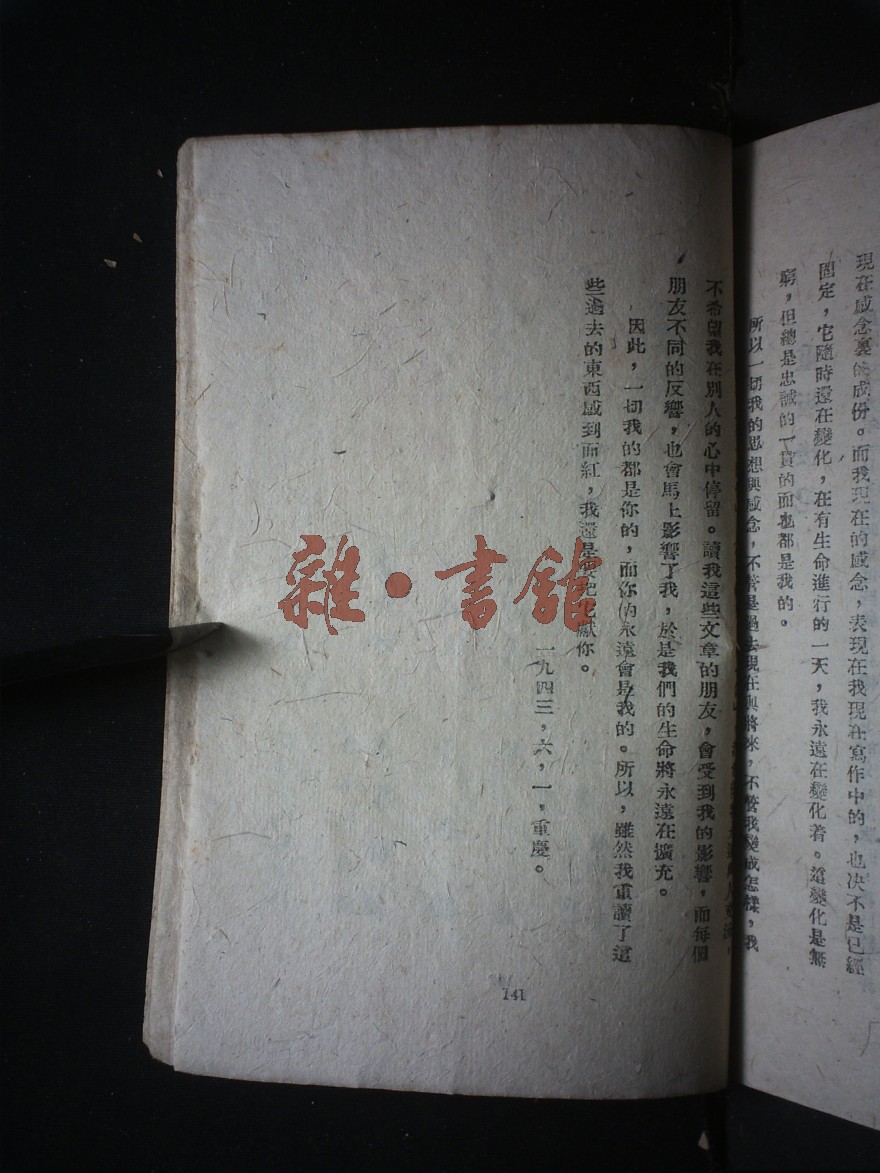 現在感念裏的成份。而我現在的感念，表現在我現在寫作中的，也决不是已經
固定，它隨時還在變化，在有生命進行的一天，我永遠在變化着。這變化是無
窮，但總是忠誠的一貫的而也都是我的。
所以一切我的思想與感念，不管是過去現在與將來，不管我變成怎樣，我
不希望我在別人的心中停留。讀我這些文章的朋友，會受到我的影響，而每個
朋友不同的反響，也會馬上影響了我，於是我們的生命將永遠在擴充。
因此，一切我的都是你的，而你的永遠會是我的。所以，雖然我重讀了這
些過去的東西感到面紅，我還是獻你。
一九四三，六，一，重慶。
141
雜·書館